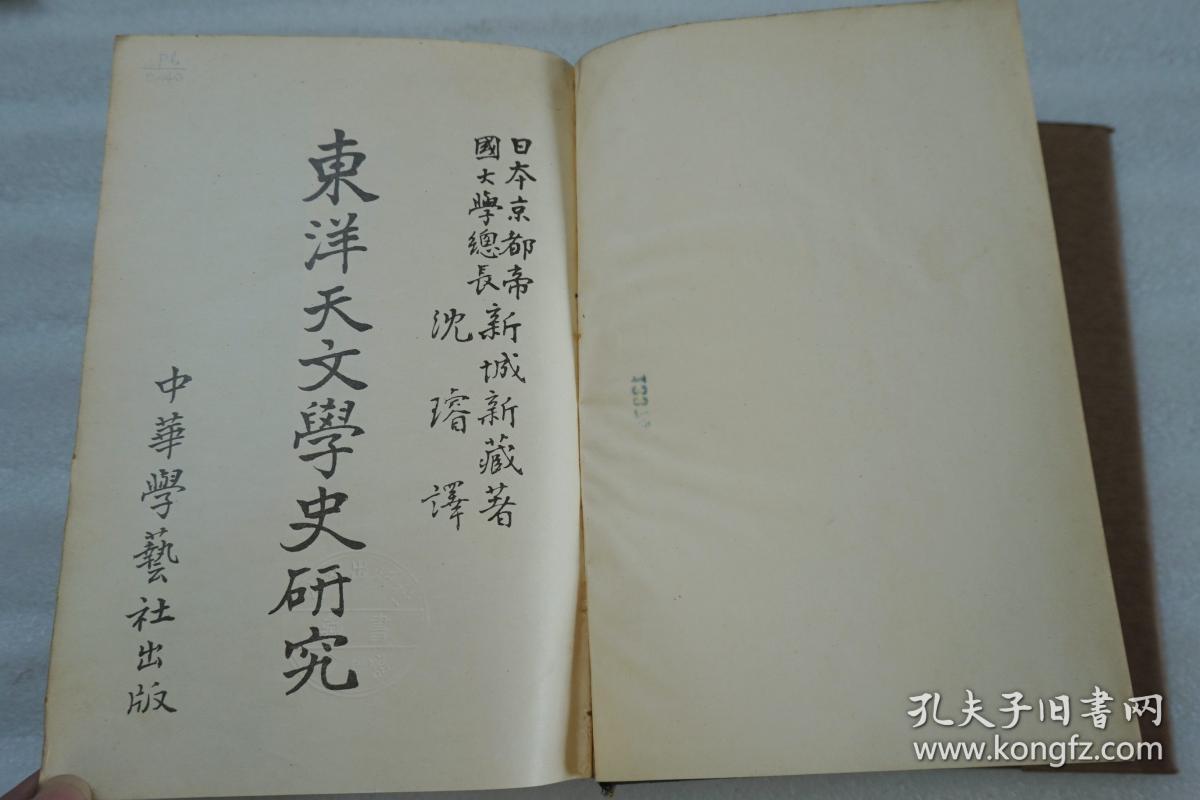 日本京都帝
國大學總長新城新藏著
沈璿譯
東洋天文學史研究
中華學藝社出版
孔夫子旧書网
www.kongfz.com